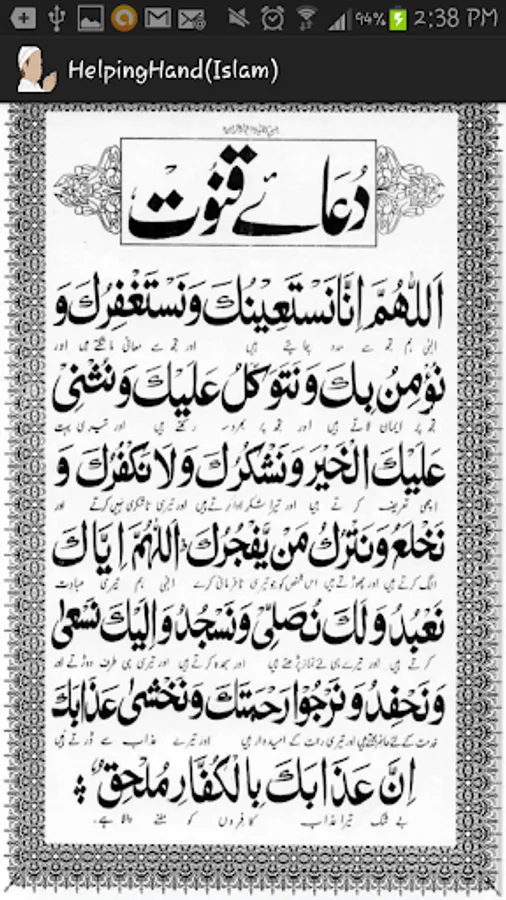 94% 2:38 PM
HelpingHand(Islam)
دُعَائے قنُوت
اَللّٰهُمَّ اِنَّا نَسْتَعِيْنُكَ وَنَسْتَغْفِرُكَ وَ
الہٰی ہم تجھ سے مدد چاہتے ہیں اور تجھ سے معافی مانگتے ہیں اور
نُؤْمِنُ بِكَ وَنَتَوَكَّلُ عَلَيْكَ وَنُثْنِیْ
تجھ پر ایمان لاتے ہیں اور تجھ پر بھروسہ رکھتے ہیں اور تیری بہت
عَلَيْكَ الْخَيْرَ وَنَشْكُرُكَ وَلَا نَكْفُرُكَ وَ
اچھی تعریف کرتے ہیں اور تیرا شکر ادا کرتے ہیں اور تیری ناشکری نہیں کرتے اور
نَخْلَعُ وَنَتْرُكُ مَنْ يَّفْجُرُكَ اَللّٰهُمَّ اِيَّاكَ
الگ کرتے ہیں اور چھوڑتے ہیں اس شخص کو جو تیری نافرمانی کرے الہٰی ہم تیری عبادت
نَعْبُدُ وَلَكَ نُصَلِّیْ وَنَسْجُدُ وَاِلَيْكَ نَسْعٰی
کرتے ہیں اور تیرے ہی لئے نماز پڑھتے ہیں اور سجدہ کرتے ہیں اور تیری ہی طرف دوڑتے اور
وَنَحْفِدُ وَنَرْجُوْا رَحْمَتَكَ وَنَخْشٰی عَذَابَكَ
خدمت کے لئے حاضر ہوتے ہیں اور تیری رحمت کے امیدوار ہیں اور تیرے عذاب سے ڈرتے ہیں
اِنَّ عَذَابَكَ بِالْكُفَّارِ مُلْحِقٌ
بے شک تیرا عذاب کافروں کو ملنے والا ہے۔